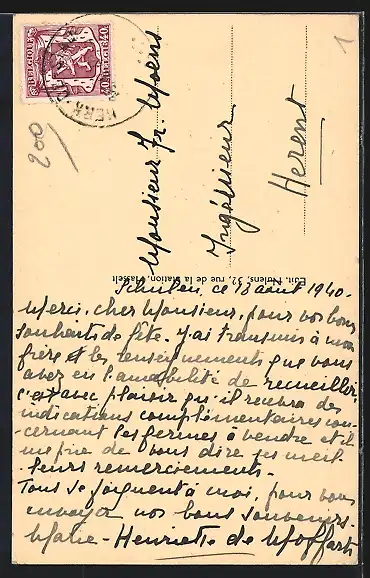 BELGIQUE
40
BELGIE 40
HERK
200
1
Monsieur Fr. Moens
Ingénieur
Herent
Edit. Nulens, 32, rue de la Station, Hasselt
Schulen, ce 13 août 1940.
Merci, cher Monsieur, pour vos bons
souhaits de fête. J'ai transmis à mon
frère et les renseignements que vous
avez eu l'amabilité de recueillir,
c'est avec plaisir qu'il recevra des
indications complémentaires con-
cernant les fermes à vendre et il
me prie de vous dire ses meil-
leurs remerciements.
Tous se joignent à moi, pour vous
envoyer nos bons souvenirs.
Marie-Henriette de Moffarts